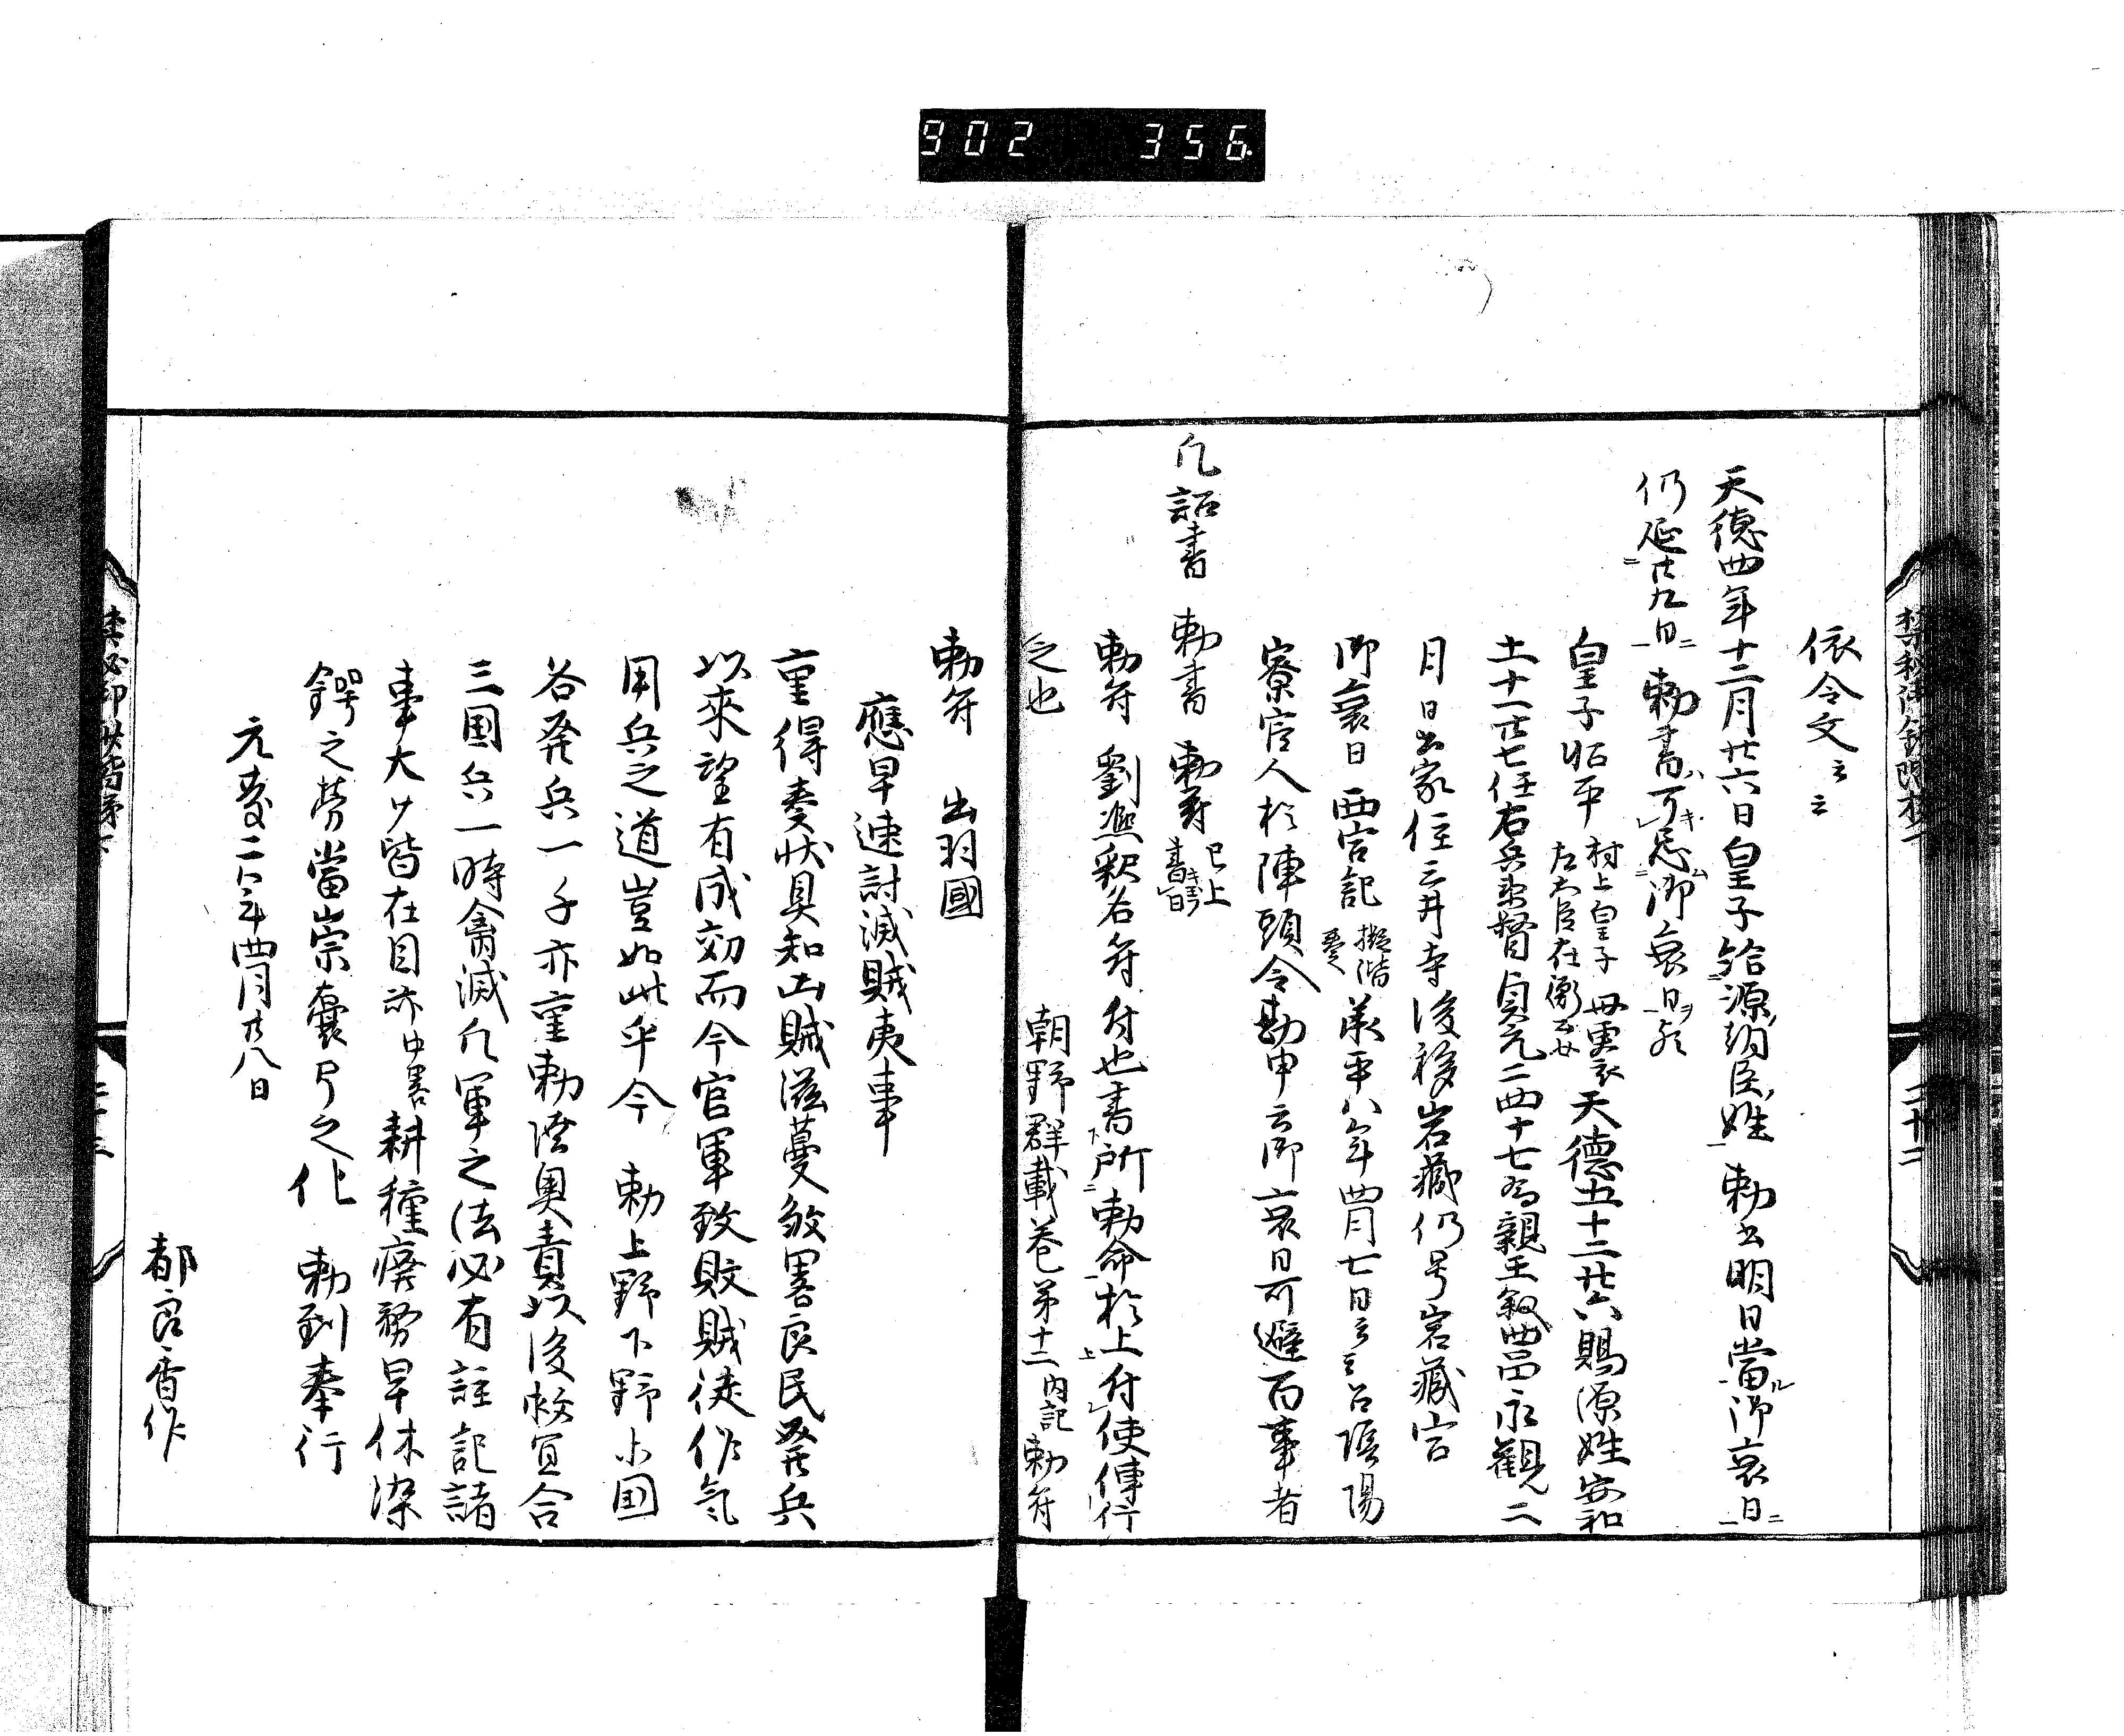 902 356
依令文云云
天徳四年十二月廿六日皇子給源朝臣姓 勅書明日當ル御衰日
仍延廿九日 勅書ハ可キ忌ム御衰日ヲ歟
皇子昭平 村上皇子 母更衣 左大臣在衡公女 天徳五十二廿六賜源姓安和
土十一廿七任右兵衛督貞元二四十七為親王叙四品永觀二
月日出家住三井寺後移岩藏仍号岩藏宮
御衰日 西宮記 擬階奏 承平八年四月七日云云召陰陽
寮官人於陣頭令勘申云御衰日可避百事者
凢詔書 勅書 勅符 已上
勅符 劉熈釈名符付也書所勅命於上付使傳行
之也 朝野群載巻第十二内記 勅符
勅符 出羽國
應早速討滅賊夷事
重得奏状具知凶賊滋蔓殺害良民發兵
以來望有成効而今官軍致敗賊徒作氣
用兵之道豈如此乎今 勅上野下野等国
各発兵一千亦重勅陸奥責以後救宜合
三国兵一時禽滅凢軍之法必有註記諸
事大少皆在目亦中畧耕種廢務早休染
鍔之勞當崇櫜弓之化 勅到奉行
元慶二年四月廿八日
都良香作
二十二